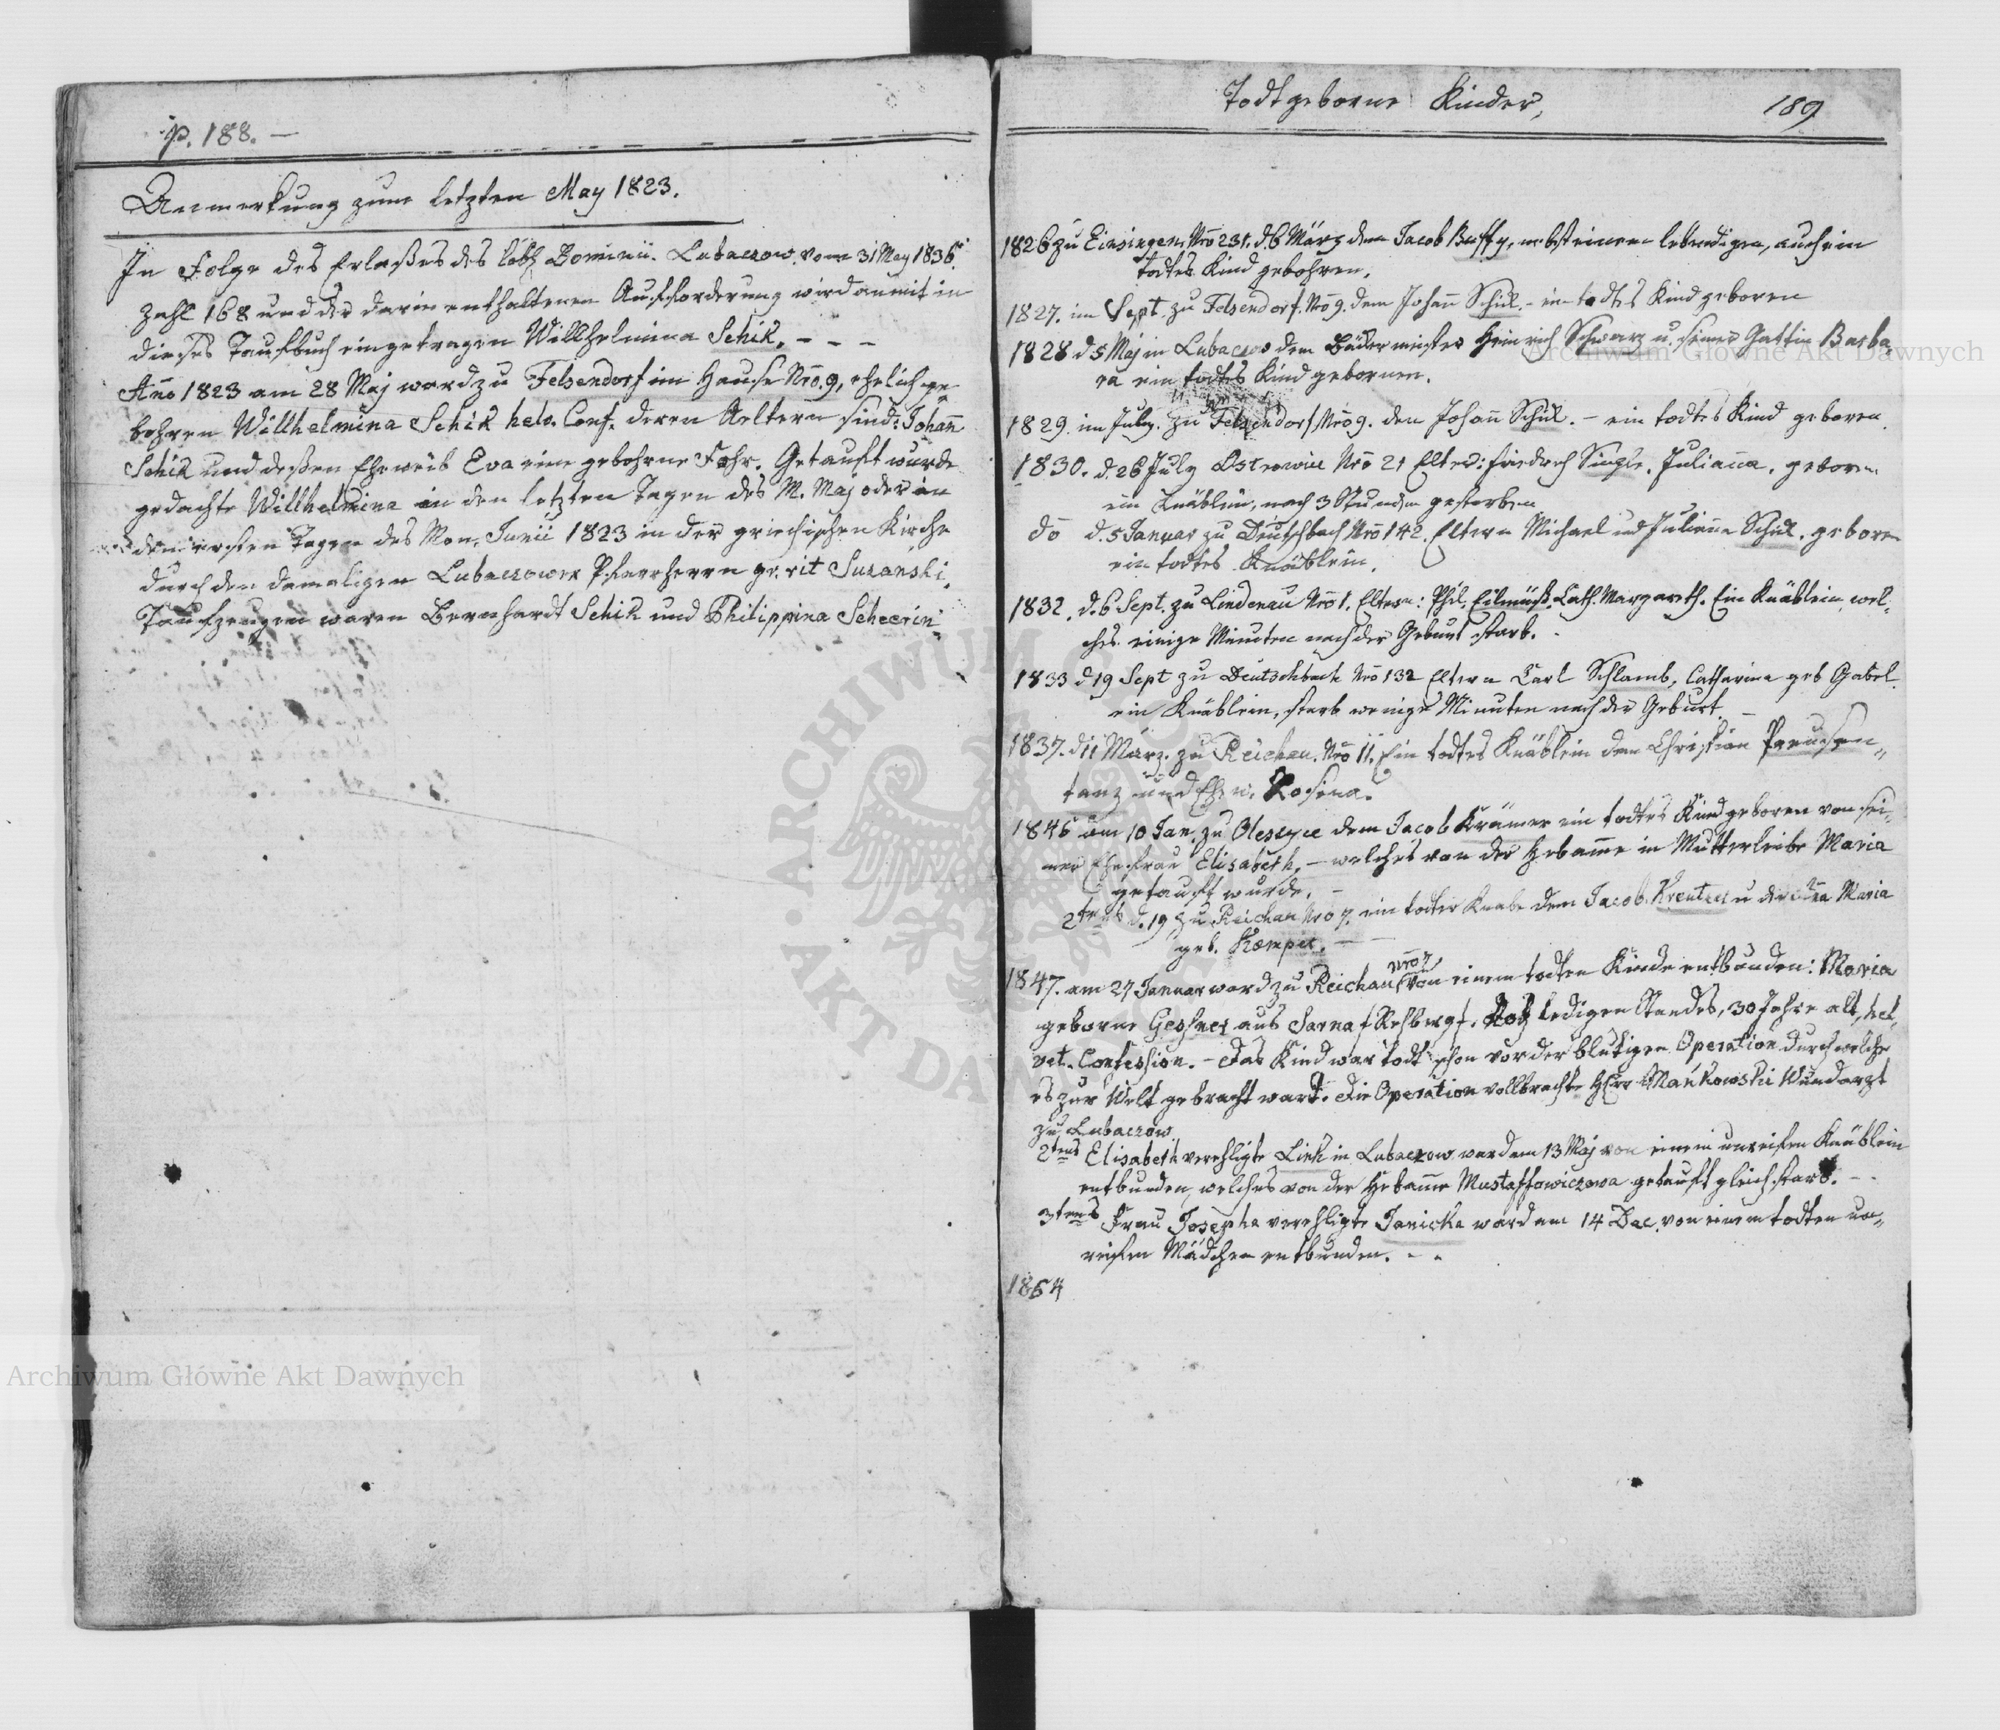 p. 188. —
Anmerkung zum letzten May 1823.
In Folge des Erlaßes des löbl Dominii. Lubaczow. vom 31 May 1836.
Zahl 168 und der darin enthaltenen Aufforderung wird anmit in
dieses Taufbuch eingetragen Willhelmina Schik. - - -
Ano 1823 am 28 Maj ward zu Felsendorf im Hause Nro. 9, ehelich ge-
bohren Willhelmina Schik helv. Conf. deren Aeltern sind: Johan
Schik und deßen Eheweib Eva eine gebohrne Fahr. Getauft wurde
gedachte Willhelmina in den letzten Tagen des M. Maj oder in
den ersten Tagen des Mon. Junii 1823 in der griechischen Kirche
durch den damaligen Lubaczower Pfarrherrn gr. rit Suzanski.
Taufzeugen waren Bernhardt Schik und Philippina Scheerin.
Todtgeborne Kinder,
189
1826 zu Einsingen Nro 231. d. 6 März dem Jacob Buffy, nebst einem lebendigen, auch ein
todtes Kind gebohren.
1827. im Sept. zu Felsendorf. Nro 9. dem Johan Schik. - ein todtes Kind geboren
1828 d 5 Maj in Lubaczow dem Bäckermeister Heinrich Schwarz u. seiner Gattin Barba-
ra ein todtes Kind gebornen.
1829. im July. zu Felsendorf Nro 9. den Johan Schik. - ein todtes Kind geboren.
1830. d. 26 July Ostrowiec Nro 21 Elter: Friedrch Single. Juliana. geboren
ein Knäblein, nach 3 Stunden gestorben
do d. 5 Januar zu Deutschbach Nro 142. Eltern Michael und Julianna Schik. geboren
ein todtes Knäblein.
1832. d. 6 Sept. zu Lindenau Nro 1. Eltern: Phil. Eilmück. Cath. Margareth. Ein Knäblein, wel-
ches einige Minuten nach der Geburt starb. -
1833 d 19 Sept zu Deutschbach Nro 132 Eltern Carl Schlamb, Catharina geb Gabel.
ein Knäblein, starb wenige Minuten nach der Geburt. —
1837. d 11 März. zu Reichau. Nro 11. Ein todtes Knäblein dem Christian Preussen-
tanz und Ehw. Rosina.
1846 am 10 Jan. zu Oleszyce dem Jacob Krämer ein todtes Kind geboren von sei-
ner Ehefrau Elisabeth. — welches von der Hebame in Mutterleibe Maria
getauft wurde. -
2tens d. 19 zu Reichau Nro 7. ein todter Knabe dem Jacob Kreutzer u der Maria
geb. Kemper. —
Nro 7
1847. am 27 Januar ward zu Reichau von einem todten Kinde entbunden: Maria
geborne Geshner aus Sarna f Rehberg f. ledigen Standes, 30 Jahre alt, hel-
vet. Confession. - Das Kind war todt schon vor der blutigen Operation durch welche
es zur Welt gebracht ward. Die Operation vollbrachte Herr Mańkowski Wundarzt
zu Lubaczow.
2tens Elisabeth verehligte Link in Lubaczow ward am 13 Maj von einem unreifen Knäblein
entbunden, welches von der Hebame Mustaffowiczowa getauft gleich starb. - -
3tens Frau Josepha verehligte Janicka ward am 14 Dec. von einem todten un-
reifen Mädchen entbunden. - -
1864
Archiwum Główne Akt Dawnych
Archiwum Główne Akt Dawnych